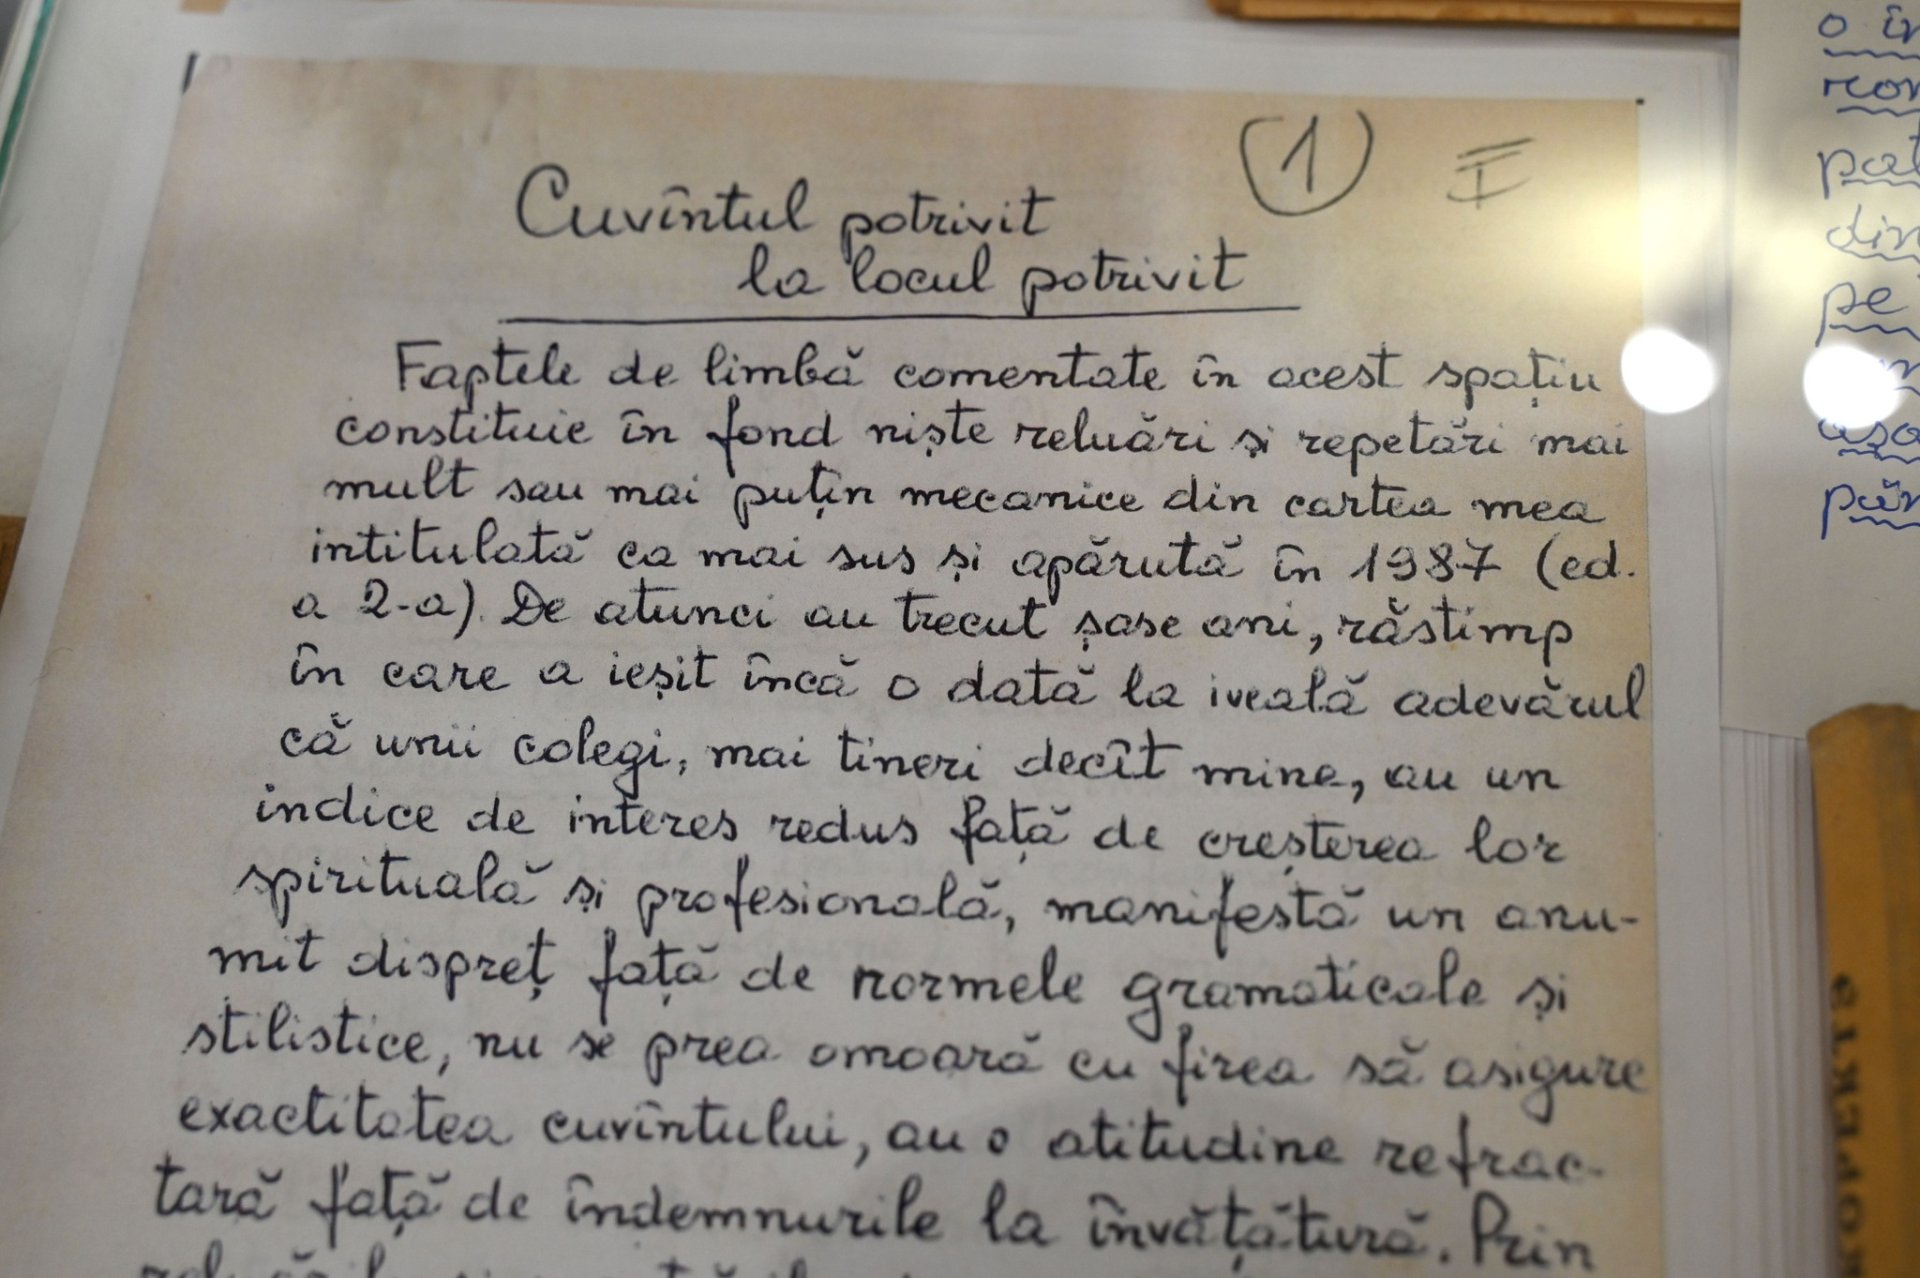 1 I
Cuvîntul potrivit
la locul potrivit
Faptele de limbă comentate în acest spațiu
constituie în fond niște reluări și repetări mai
mult sau mai puțin mecanice din cartea mea
intitulată ca mai sus și apărută în 1987 (ed.
a 2-a). De atunci au trecut șase ani, răstimp
în care a ieșit încă o dată la iveală adevărul
că unii colegi, mai tineri decît mine, au un
indice de interes redus față de creșterea lor
spirituală și profesională, manifestă un anu-
mit dispreț față de normele gramaticale și
stilistice, nu se prea omoară cu firea să asigure
exactitatea cuvîntului, au o atitudine refrac-
tară față de îndemnurile la învățătură. Prin
o în
pe